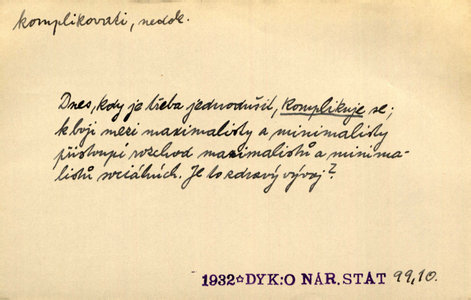 komplikovati, nedok.
Dnes, kdy je třeba jednodušit, komplikuje se;
k boji mezi maximalisty a minimalisty
přistoupí rozchod maximalistů a minima-
listů sociálních. Je to zdravý vývoj?
1932☆DYK:O NÁR.STÁT 99,10.